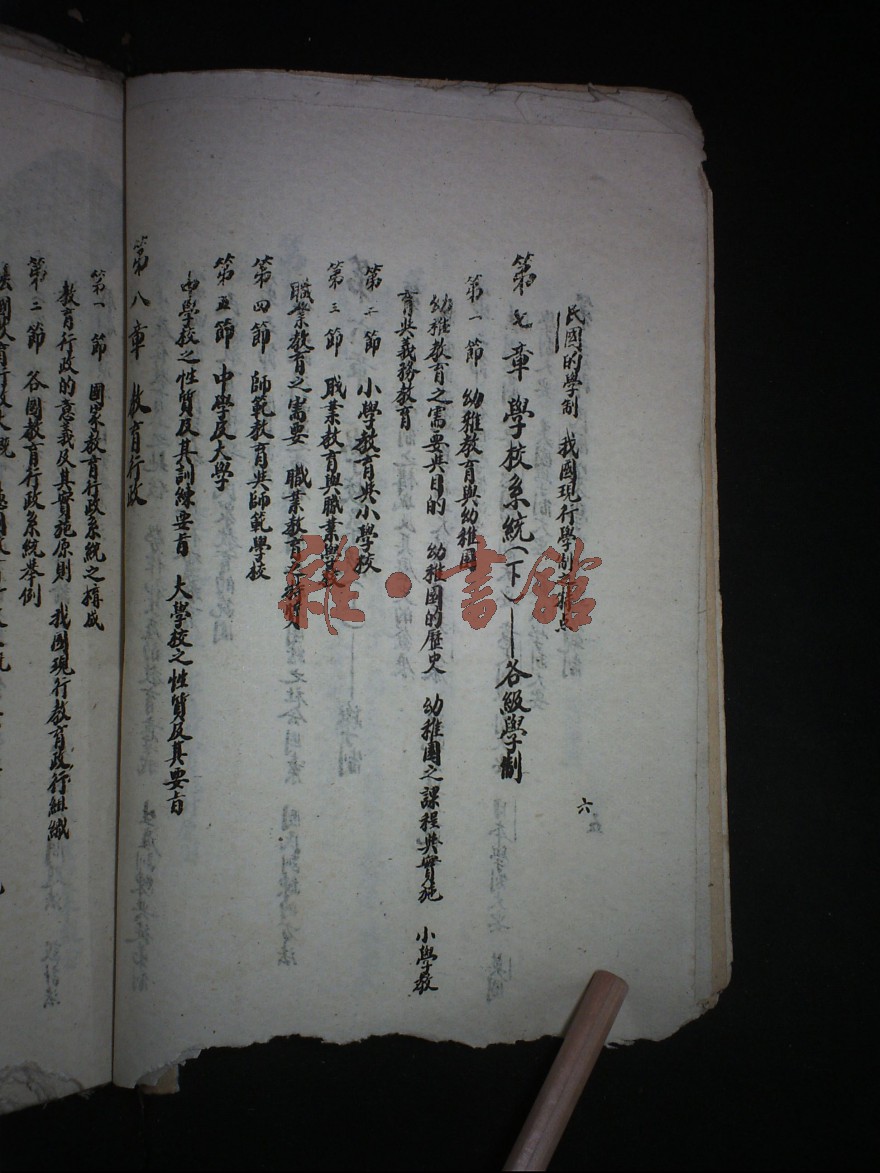 民國的學制　我國現行學制之特点
第七章　學校系統（下）——各級學制
第一節　幼稚教育與幼稚園
幼稚教育之需要与目的　幼稚園的歷史　幼稚園之課程与實施　小學教
育与義務教育
第二節　小學教育与小學校
第三節　職業教育與職業學校
職業教育之需要　職業教育之
第四節　師範教育与師範學校
第五節　中學及大學
中學校之性質及其訓練要旨　大學校之性質及其要旨
第八章　教育行政
第一節　國家教育行政系統之構成
教育行政的意義及其實施原則　我國現行教育政行組織
第二節　各國教育行政系統舉例
六
雜·書館